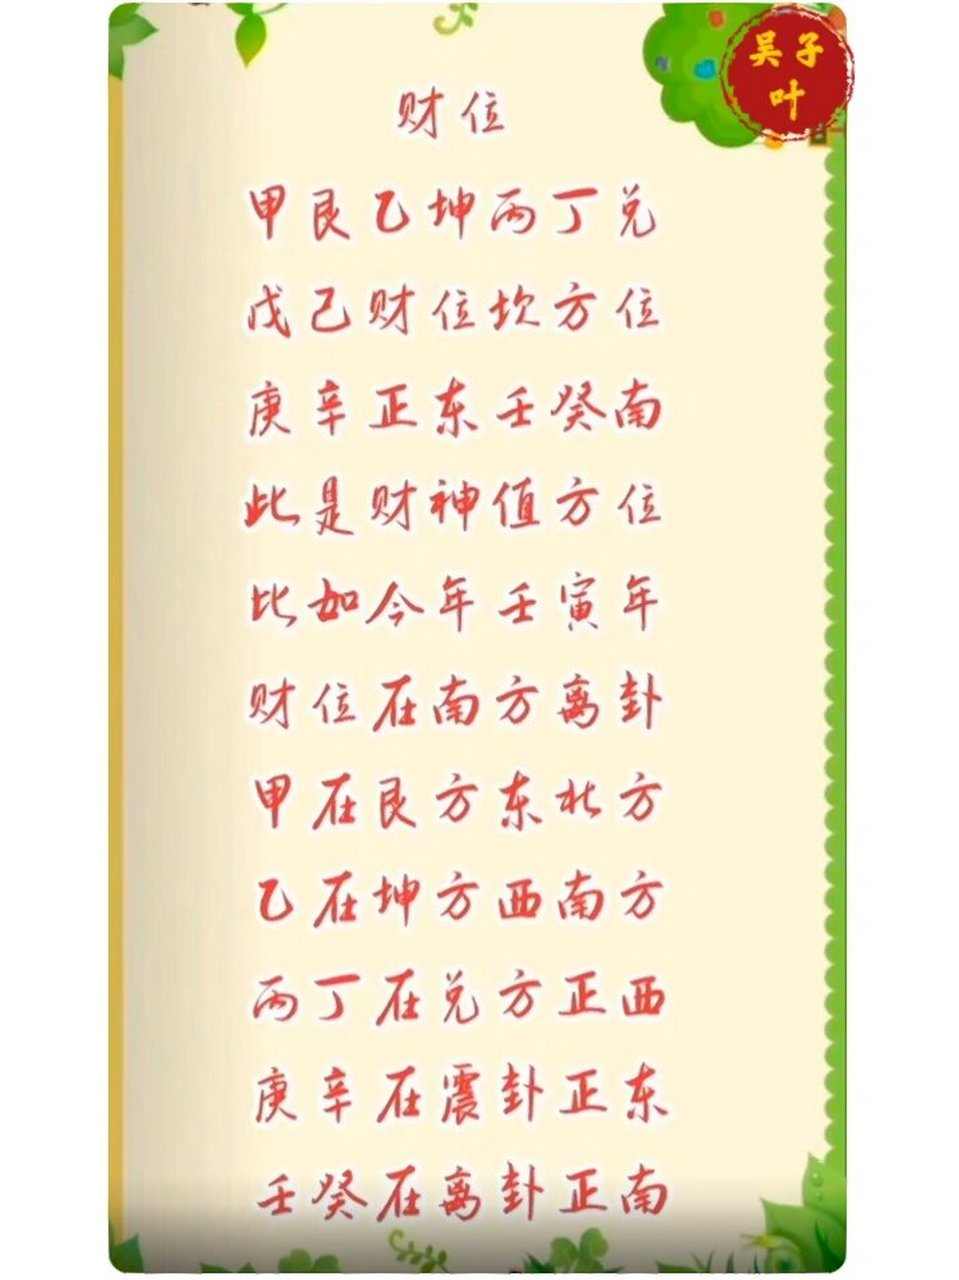 吴子
叶
财位
甲艮乙坤丙丁兑
戊己财位坎方位
庚辛正东壬癸南
此是财神值方位
比如今年壬寅年
财位在南方离卦
甲在艮方东北方
乙在坤方西南方
丙丁在兑方正西
庚辛在震卦正东
壬癸在离卦正南